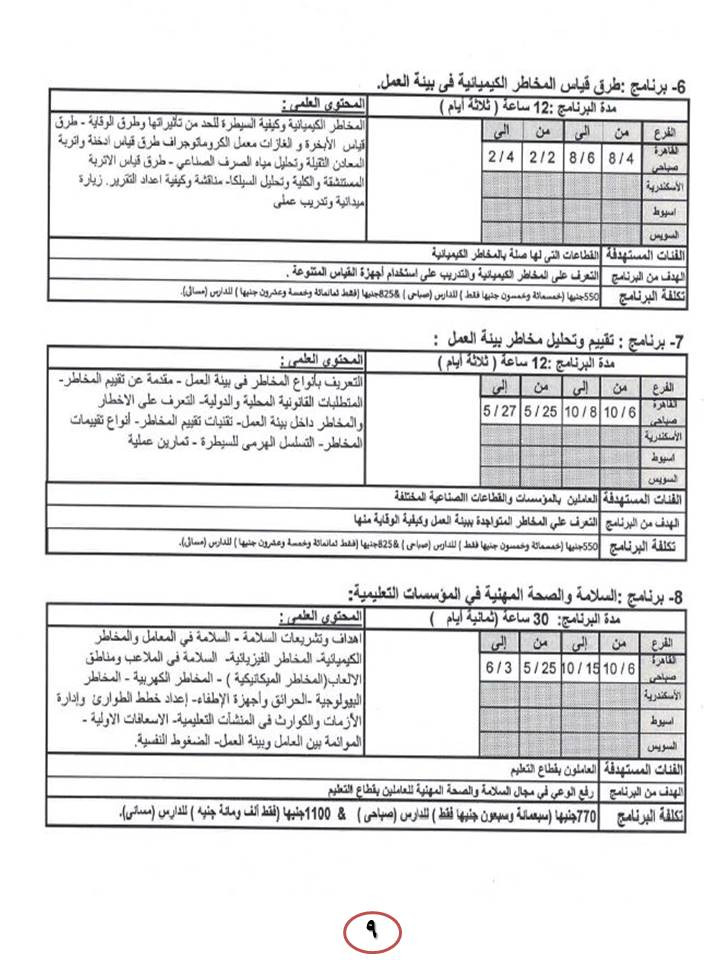 6- برنامج :طرق قياس المخاطر الكيميائية فى بيئة العمل.
مدة البرنامج :12 ساعة ( ثلاثة أيام )
المحتوي العلمى :
الفرع من إلي من إلي
القاهرة صباحى 8/4 8/6 2/2 2/4
الأسكندرية
اسيوط
السويس
المخاطر الكيميائية وكيفية السيطرة للحد من تأثيراتها وطرق الوقاية - طرق
قياس الأبخرة و الغازات معمل الكروماتوجراف طرق قياس ادخنة واتربة
المعادن الثقيلة وتحليل مياه الصرف الصناعي - طرق قياس الاتربة
المستنشقة والكلية وتحليل السيلكا- مناقشة وكيفية اعداد التقرير. زيارة
ميدانية وتدريب عملى
الفئات المستهدفة القطاعات التي لها صلة بالمخاطر الكيميائية
الهدف من البرنامج التعرف على المخاطر الكيميائية والتدريب على استخدام أجهزة القياس المتنوعة .
تكلفة البرنامج 550جنيها (خمسمائة وخمسون جنيها فقط ) للدارس (صباحى ) &825جنيها (فقط ثمانمائة وخمسة وعشرون جنيها ) للدارس (مسائى).
7- برنامج : تقييم وتحليل مخاطر بيئة العمل :
مدة البرنامج :12 ساعة ( ثلاثة أيام )
المحتوي العلمى :
الفرع من إلي من إلي
القاهرة صباحى 10/6 10/8 5/25 5/27
الأسكندرية
اسيوط
السويس
التعريف بأنواع المخاطر فى بيئة العمل - مقدمة عن تقييم المخاطر-
المتطلبات القانونية المحلية والدولية- التعرف على الاخطار
والمخاطر داخل بيئة العمل- تقنيات تقييم المخاطر- أنواع تقييمات
المخاطر- التسلسل الهرمى للسيطرة - تمارين عملية
الفئات المستهدفة العاملين بالمؤسسات والقطاعات االصناعية المختلفة
الهدف من البرنامج التعرف علي المخاطر المتواجدة ببيئة العمل وكيفية الوقاية منها
تكلفة البرنامج 550جنيها (خمسمائة وخمسون جنيها فقط ) للدارس (صباحى ) &825جنيها (فقط ثمانمائة وخمسة وعشرون جنيها ) للدارس (مسائى).
8- برنامج :السلامة والصحة المهنية في المؤسسات التعليمية:
مدة البرنامج: 30 ساعة (ثمانية أيام )
المحتوي العلمى :
الفرع من إلي من إلي
القاهرة صباحى 10/6 10/15 5/25 6/3
الأسكندرية
اسيوط
السويس
اهداف وتشريعات السلامة - السلامة في المعامل والمخاطر
الكيميائية- المخاطر الفيزيائية- السلامة في الملاعب ومناطق
الالعاب(المخاطر الميكانيكية ) - المخاطر الكهربية - المخاطر
البيولوجية -الحرائق وأجهزة الإطفاء- إعداد خطط الطوارئ وإدارة
الأزمات والكوارث فى المنشآت التعليمية- الاسعافات الاولية -
الموائمة بين العامل وبيئة العمل- الضغوط النفسية.
الفئات المستهدفة العاملون بقطاع التعليم
الهدف من البرنامج رفع الوعي في مجال السلامة والصحة المهنية للعاملين بقطاع التعليم
تكلفة البرنامج 770جنيها (سبعمائة وسبعون جنيها فقط ) للدارس (صباحى ) & 1100جنيها (فقط ألف ومائة جنيه ) للدارس (مسائى).
٩